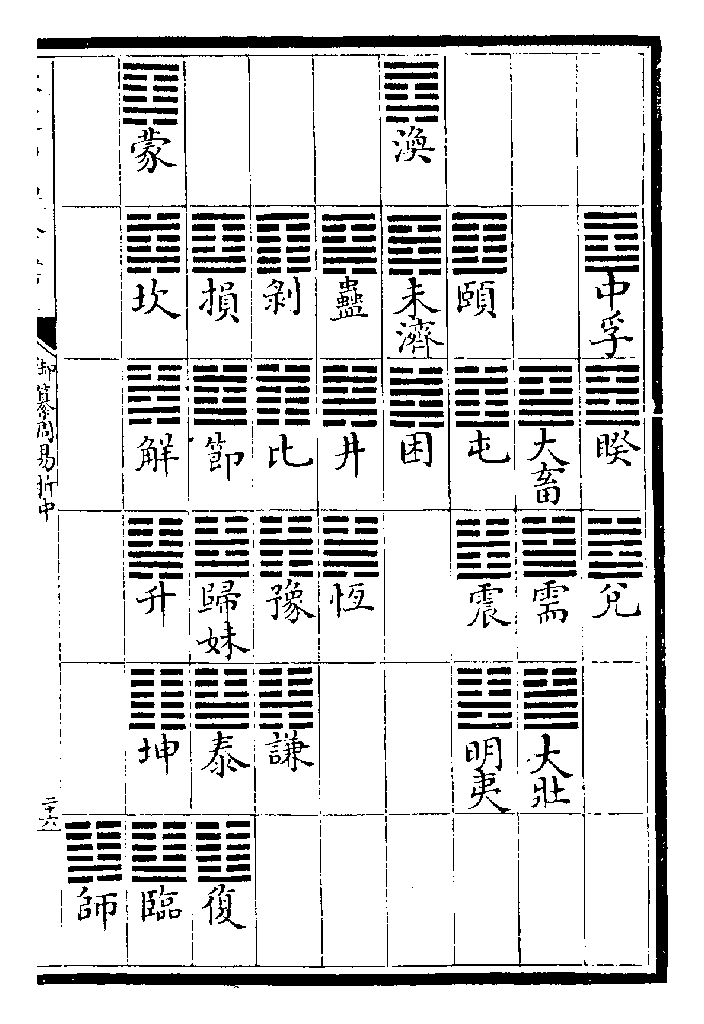 中孚
睽
兌
大畜
需
大壯
頤
屯
震
明夷
渙
未濟
困
蠱
井
恆
剝
比
豫
謙
復
損
節
歸妹
泰
臨
蒙
坎
解
升
坤
師
御纂周易折中
二十六